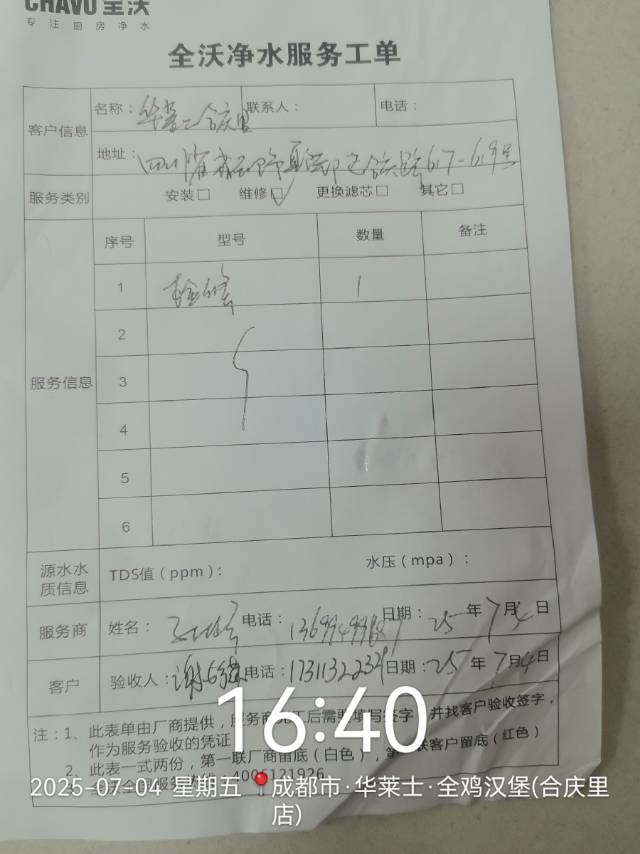 CHAVO 全沃
专注厨房净水
全沃净水服务工单
客户信息
名称：华莱士合庆里 联系人： 电话：
地址：四川省成都市 617-619号
服务类别 安装□ 维修☑ 更换滤芯□ 其它□
服务信息
序号 型号 数量 备注
1 检修 1
2
3
4
5
6
源水水质信息 TDS值（ppm）： 水压（mpa）：
服务商 姓名： 电话： 日期：25年7月4日
客户 验收人：谢 电话： 日期：25年7月4日
注：1、此表单由厂商提供，服务商完工后需要填写签字，并找客户验收签字，
作为服务验收的凭证
2、此表一式两份，第一联厂商留底（白色），第 联客户留底（红色）
16:40
2025-07-04 星期五 成都市·华莱士·全鸡汉堡(合庆里
店)